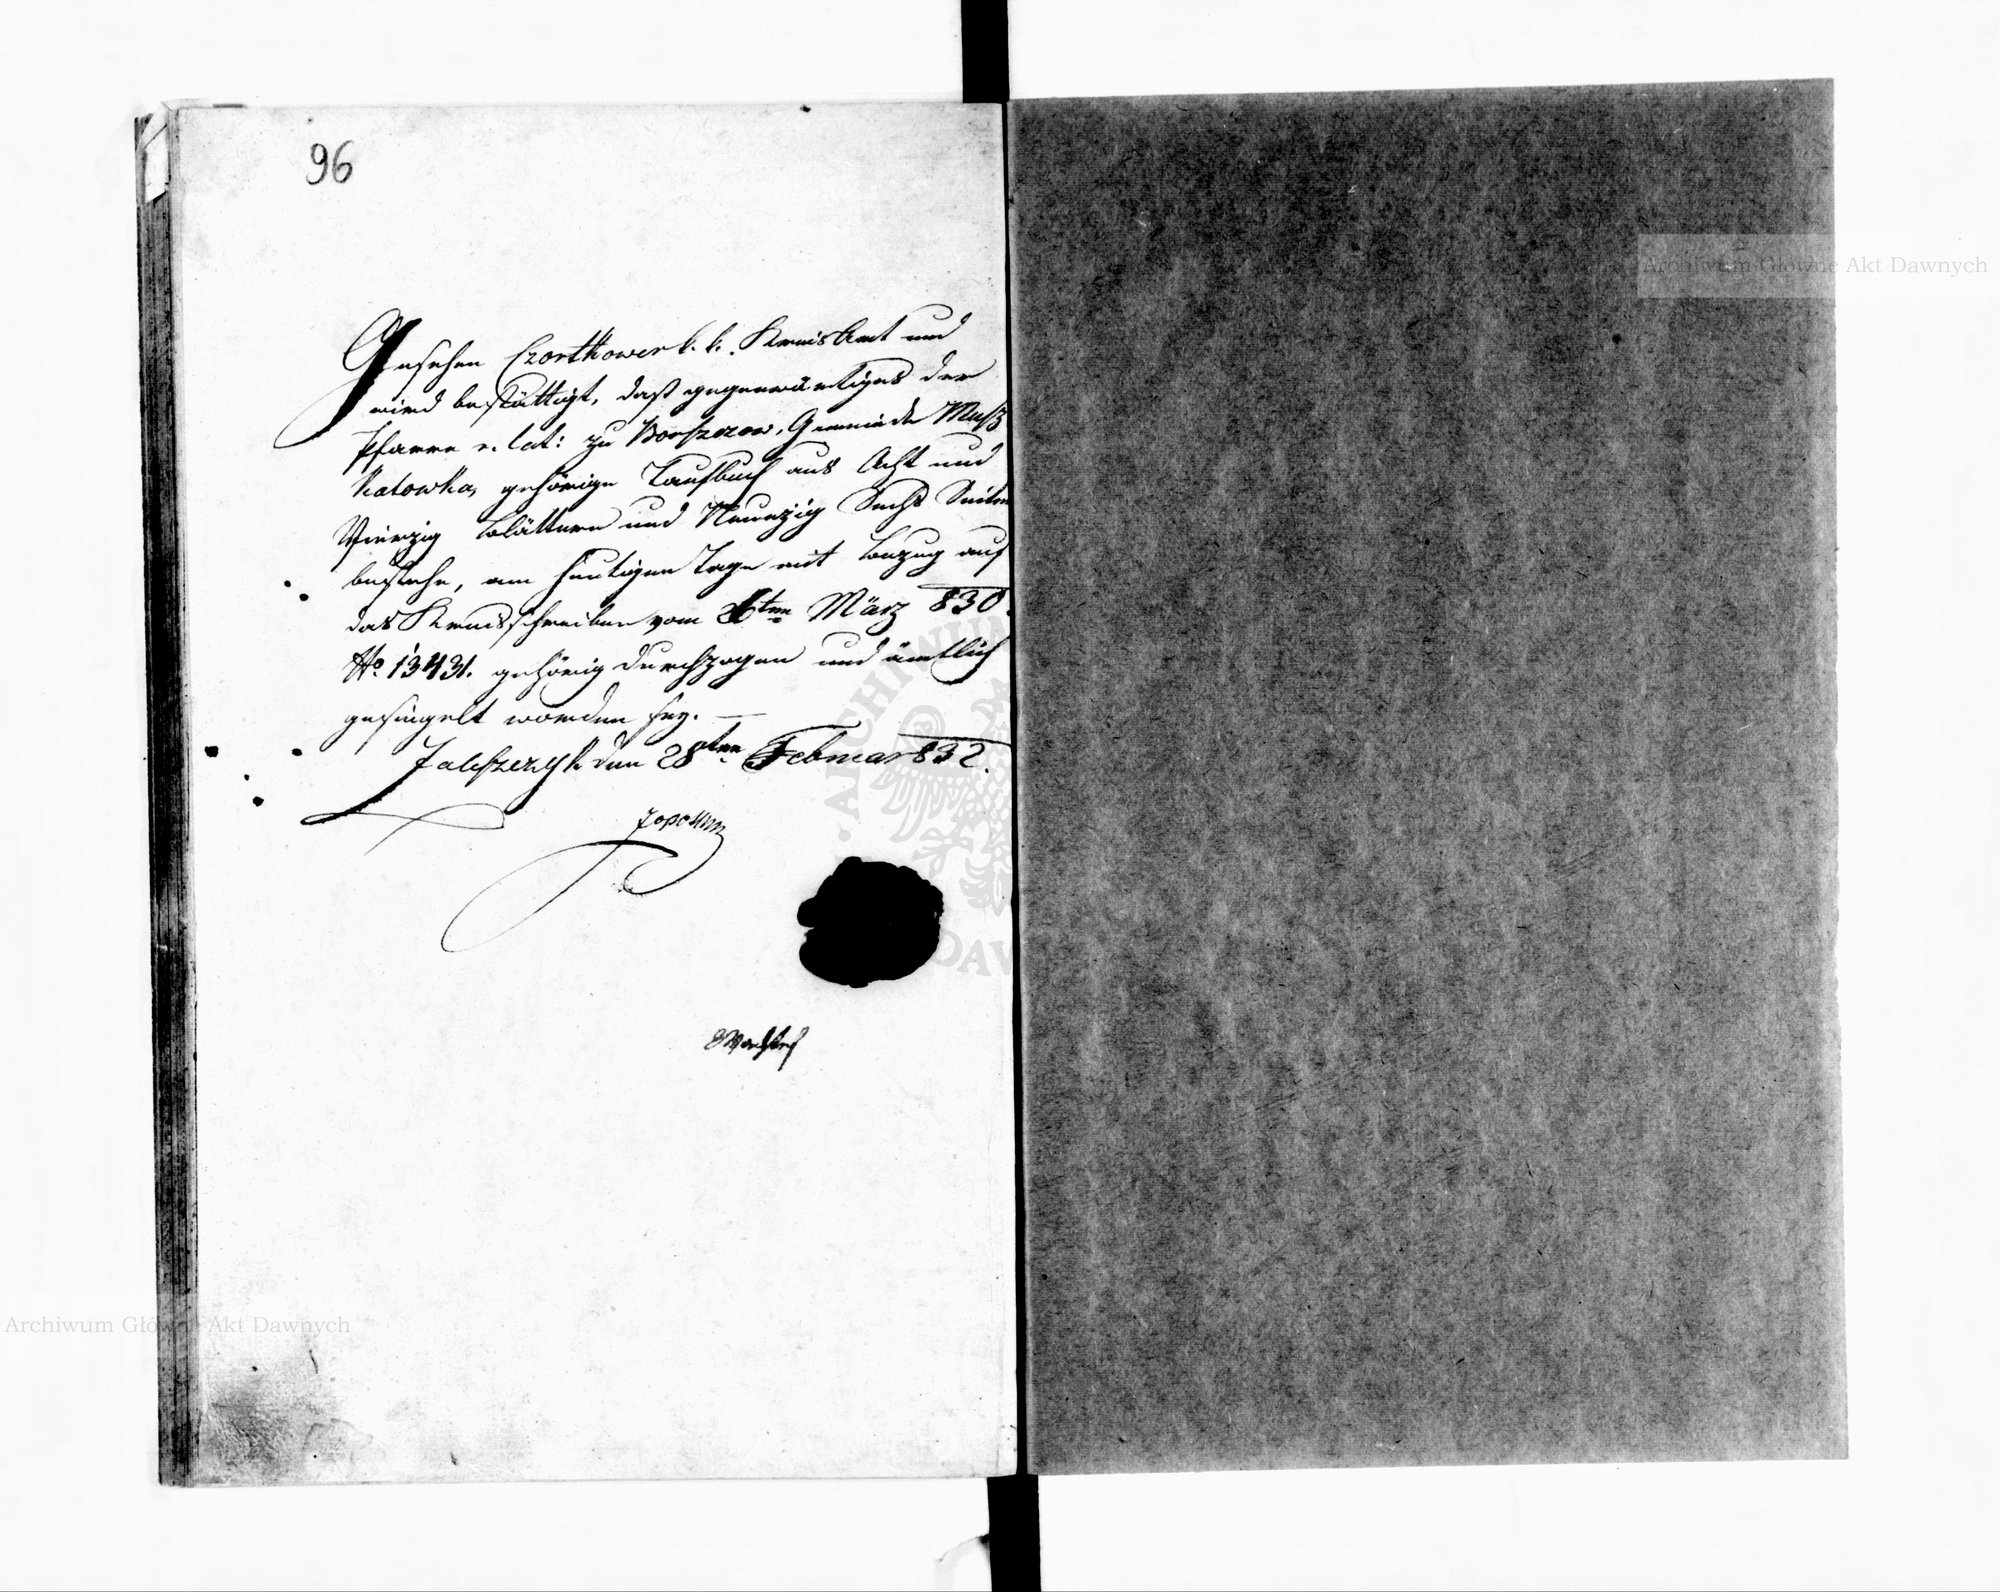 96
Gesehen Czortkower k. k. Kreis Amt und
wird bestättigt, daß gegenwärtiges der
Pfarre r. lat: zu Borszczow, Gemeinde Musz
katowka, gehörige Taufbuch aus Acht und
Vierzig Blättern und Neunzig Sechs Seiten
bestehe, am heutigen Tage mit Bezug auf
das Kreisschreiben vom ten März 830.
No. 13431. gehörig durchzogen und ämtlich
gesiegelt worden sey. —
Zaleszczyk den 28ten Februar 832.
Archiwum Główne Akt Dawnych
Archiwum Główne Akt Dawnych
ARCHIWUM